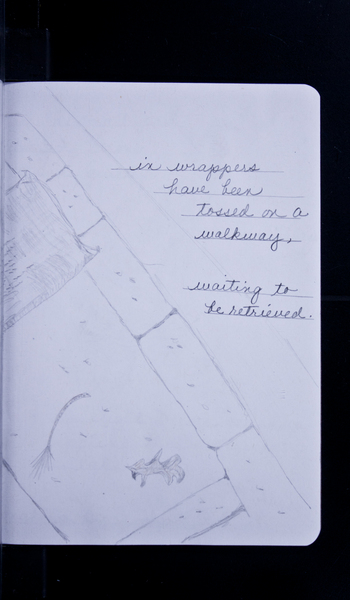 in wrappers
have been
tossed on a
walkway,
waiting to
be retrieved.